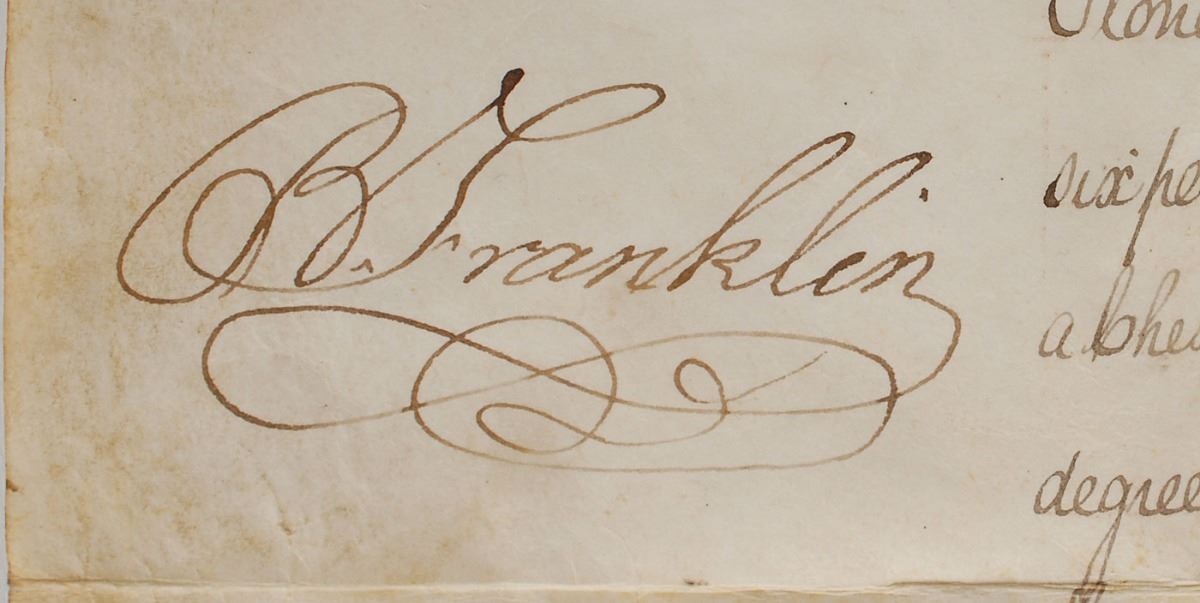 B. Franklin
sixpe
a
degree